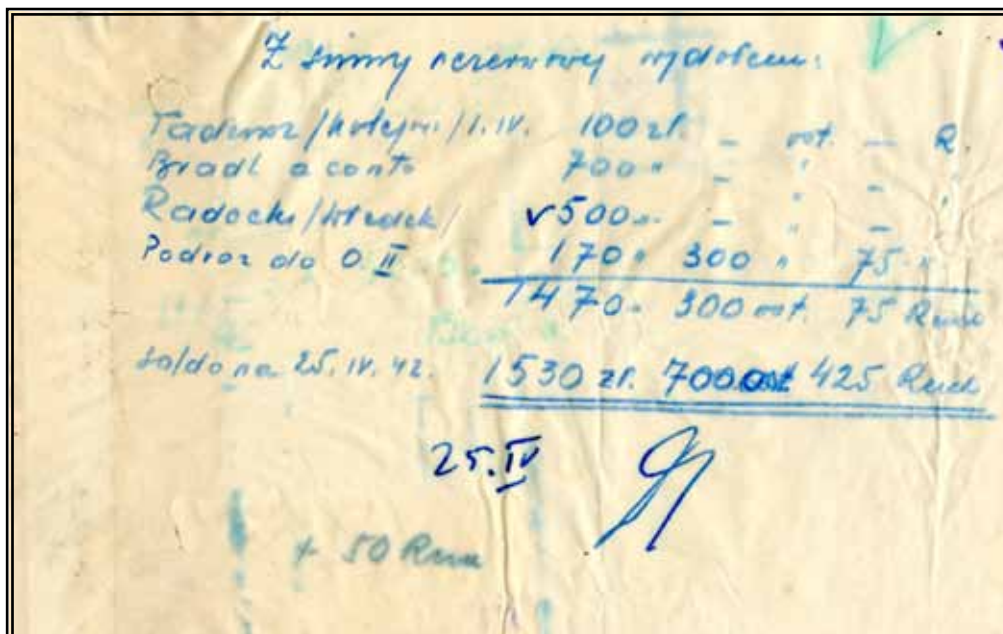 Z sumy rezerwowej wydałem:
Tadeusz /kolejni/ 1.IV. 100 zł. – ost. – R.
Bradl a conto 700 " – " – "
Radocki /Władek/ v 500 " – " – "
Podróż do O. II 170 " 300 " 75 "
1470 " 300 ost. 75 Rm
Saldo na 25. IV. 42. 1530 zł. 700 ost 425
25. IV
+ 50